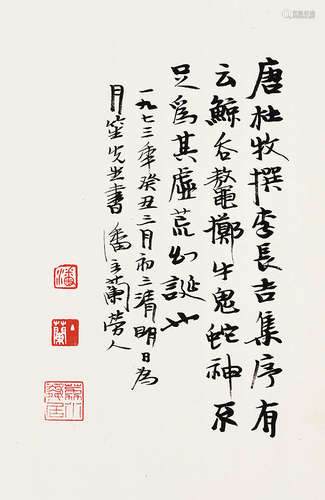 唐杜牧撰李長吉集序有
云鯨呿鼇擲牛鬼蛇神不
足為其虛荒幻誕也
一九七三年癸丑三月初二清明日為
月笙先生書潘主蘭勞人
潘
蘭